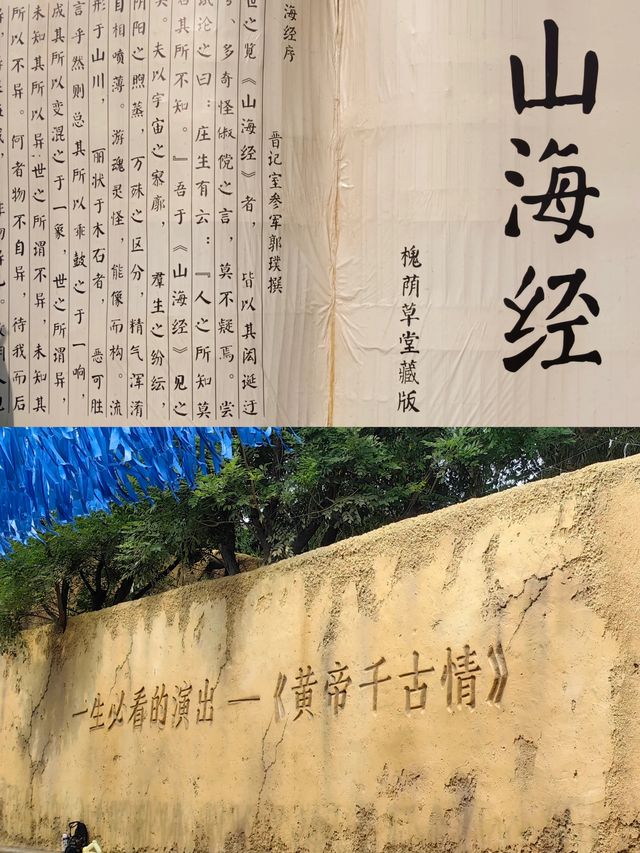 山海经
槐荫草堂藏版
海经序
晋记室参军郭璞撰
世之览《山海经》者，皆以其闳诞迂
夸，多奇怪俶傥之言，莫不疑焉。尝
试论之曰：庄生有云：『人之所知莫
若其所不知。』吾于《山海经》见之
矣。夫以宇宙之寥廓，群生之纷纭，
阴阳之煦蒸，万殊之区分，精气浑淆
自相喷薄。游魂灵怪，能像而构。流
形于山川，丽状于木石者，恶可胜
言乎然则总其所以乖鼓之于一响，
成其所以变混之于一象，世之所谓异，
未知其所以异；世之所谓不异，未知其
所以不异。何者物不自异，待我而后
一生必看的演出—《黄帝千古情》